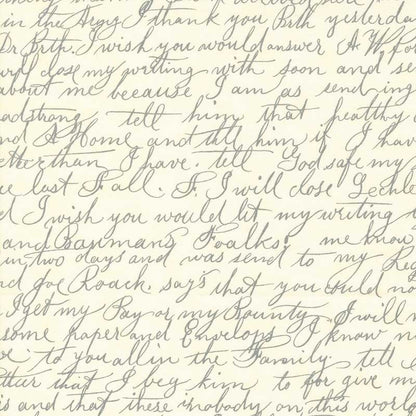 in the Army I thank you Both yesterday
Dr Both. I wish you would answer
will close my writing with soon and se
about me because I am as sending
adstrong tell him that healthy
nd Home and tell him if I hav
etter than I have. tell God safe my
ce last Fall. F. I will close
d I wish you would let my writing
and Bauman's Foalks. me know
in two days and was send to my Reg
nd Joe Roack. say's that you could no
I get my Pay or my Bounty. I will
some paper and Envelops I know n
to you all in the Family. tell
etter that I beg him to for give m
is and that these nobody on this world